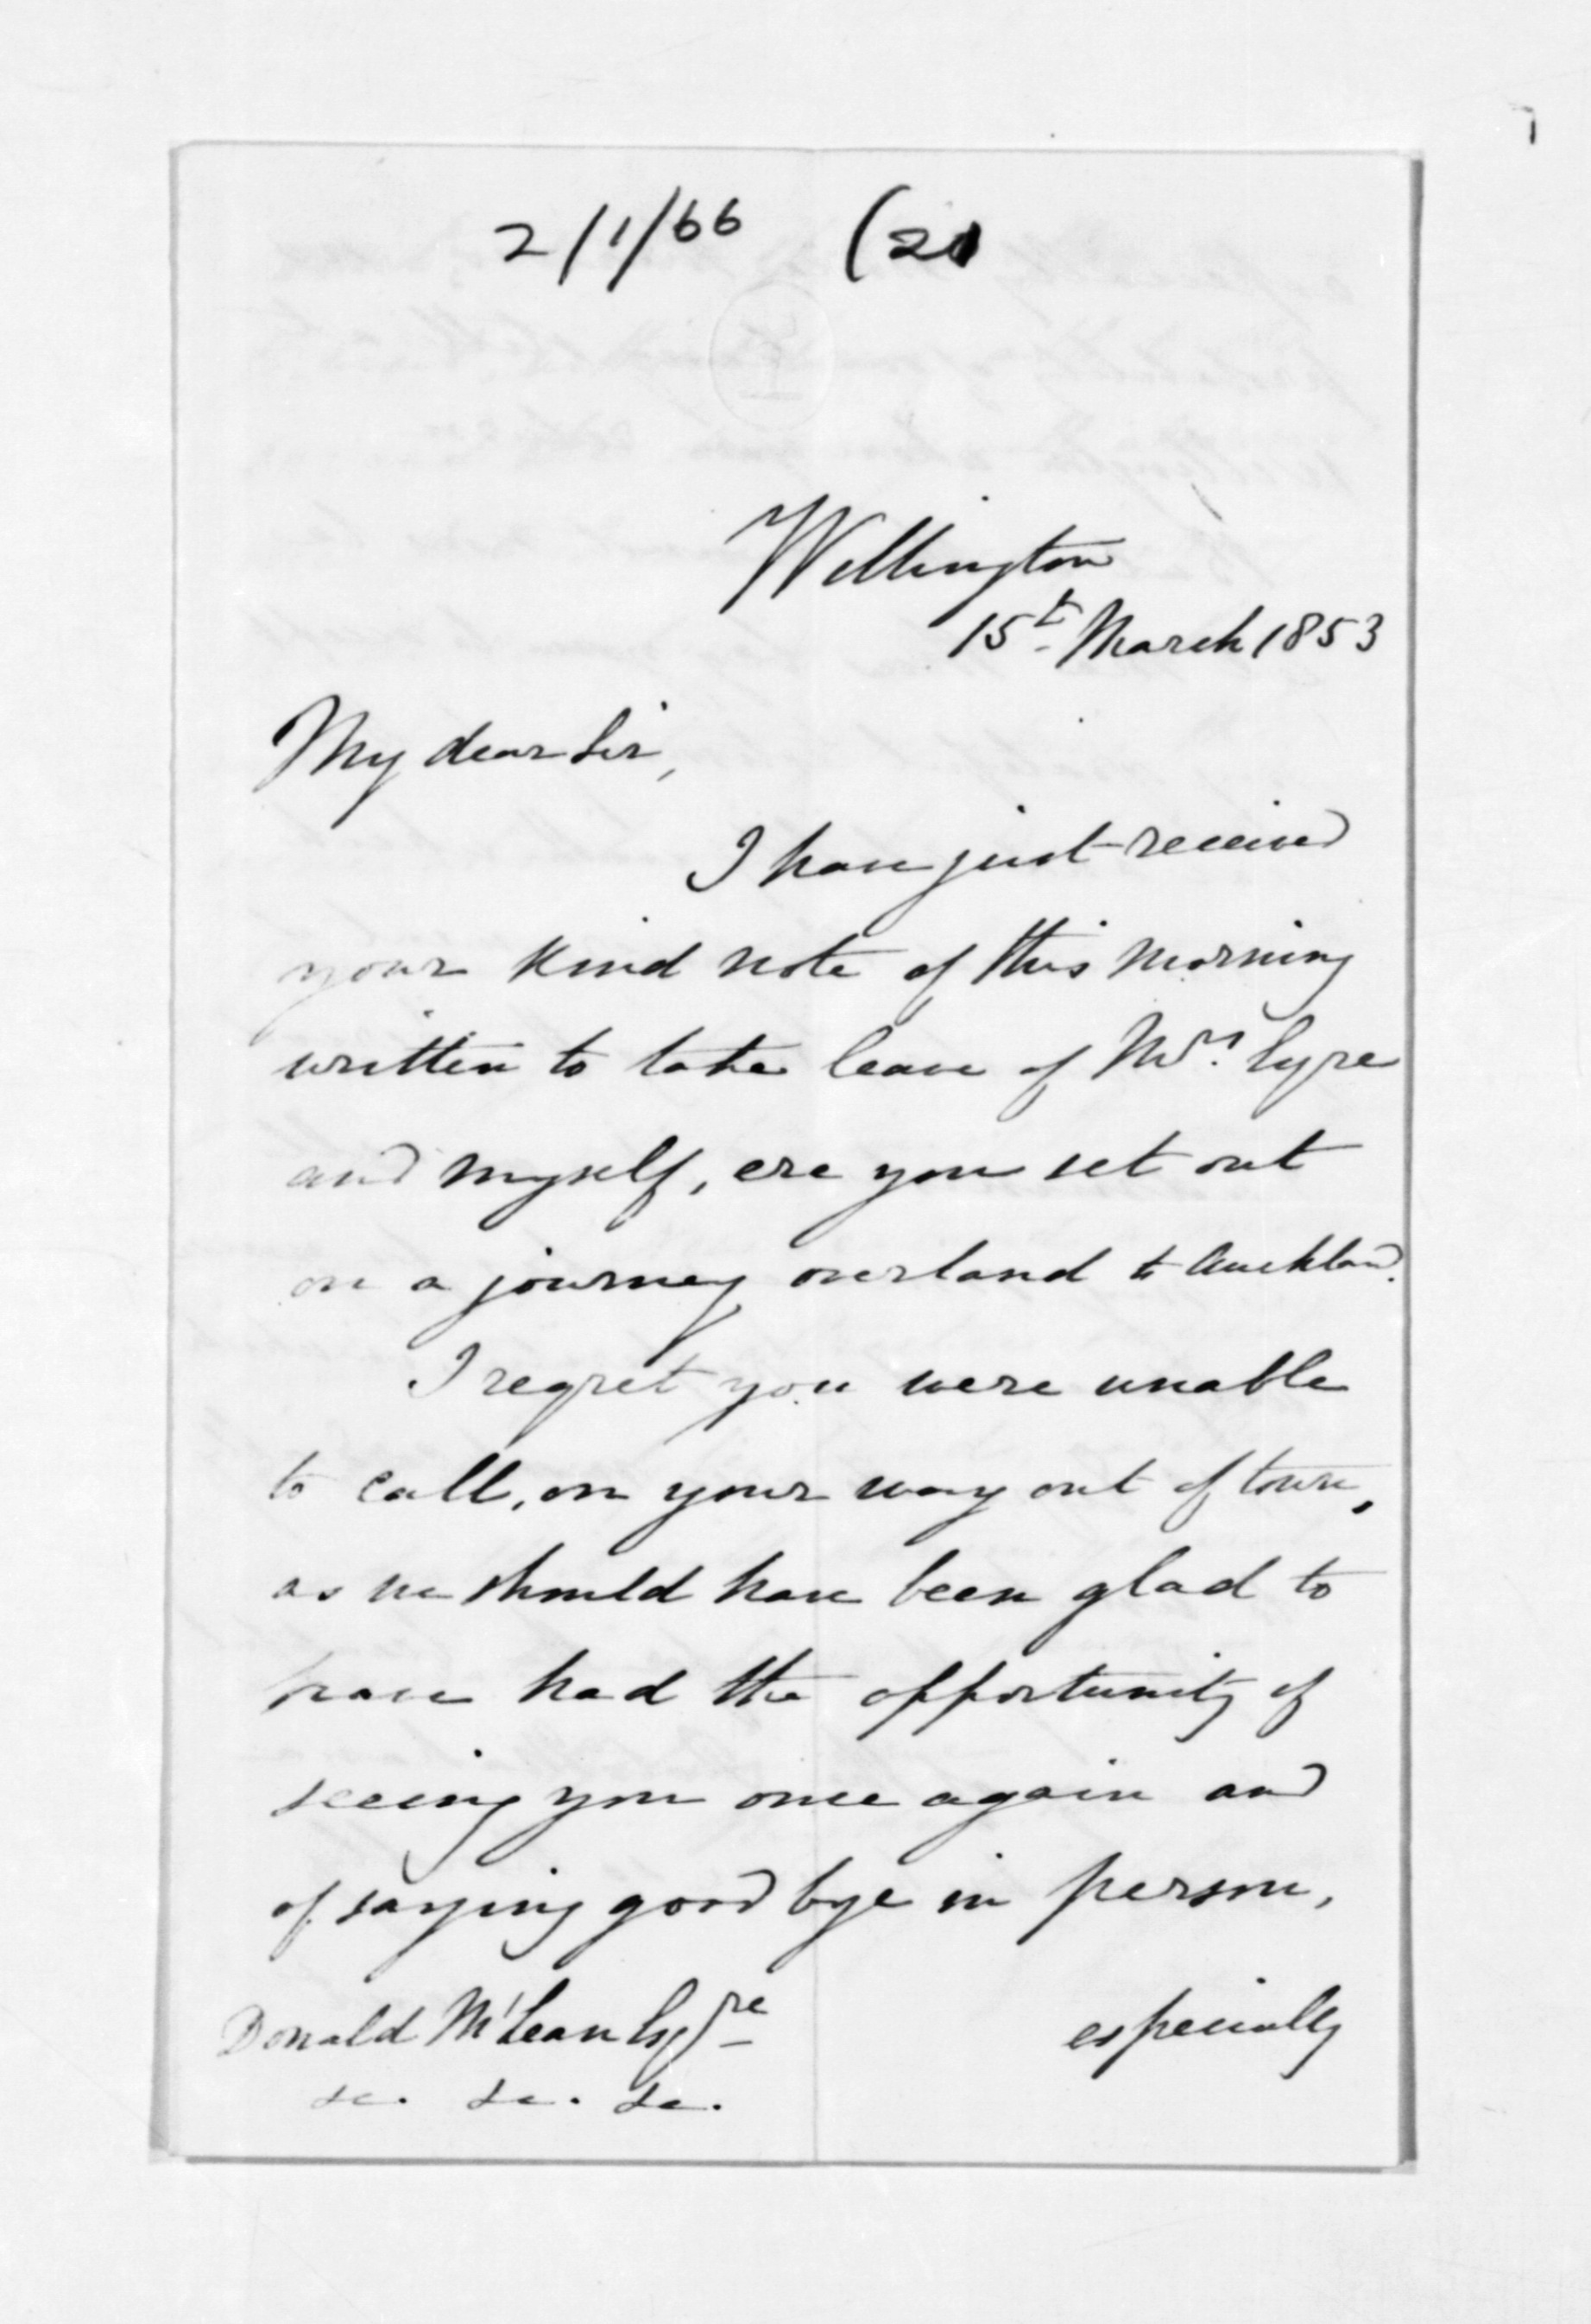 2/1/66 (21
Wellington
15th March 1853
My dear Sir,
I have just received
your kind note of this morning
written to take leave of Mrs. Eyre
and myself, ere you set out
on a journey overland to Auckland.
I regret you were unable
to call, on your way out of town,
as we should have been glad to
have had the opportunity of
seeing you once again and
of saying good bye in person,
especially
Donald McLean Esqre
&c. &c. &c.